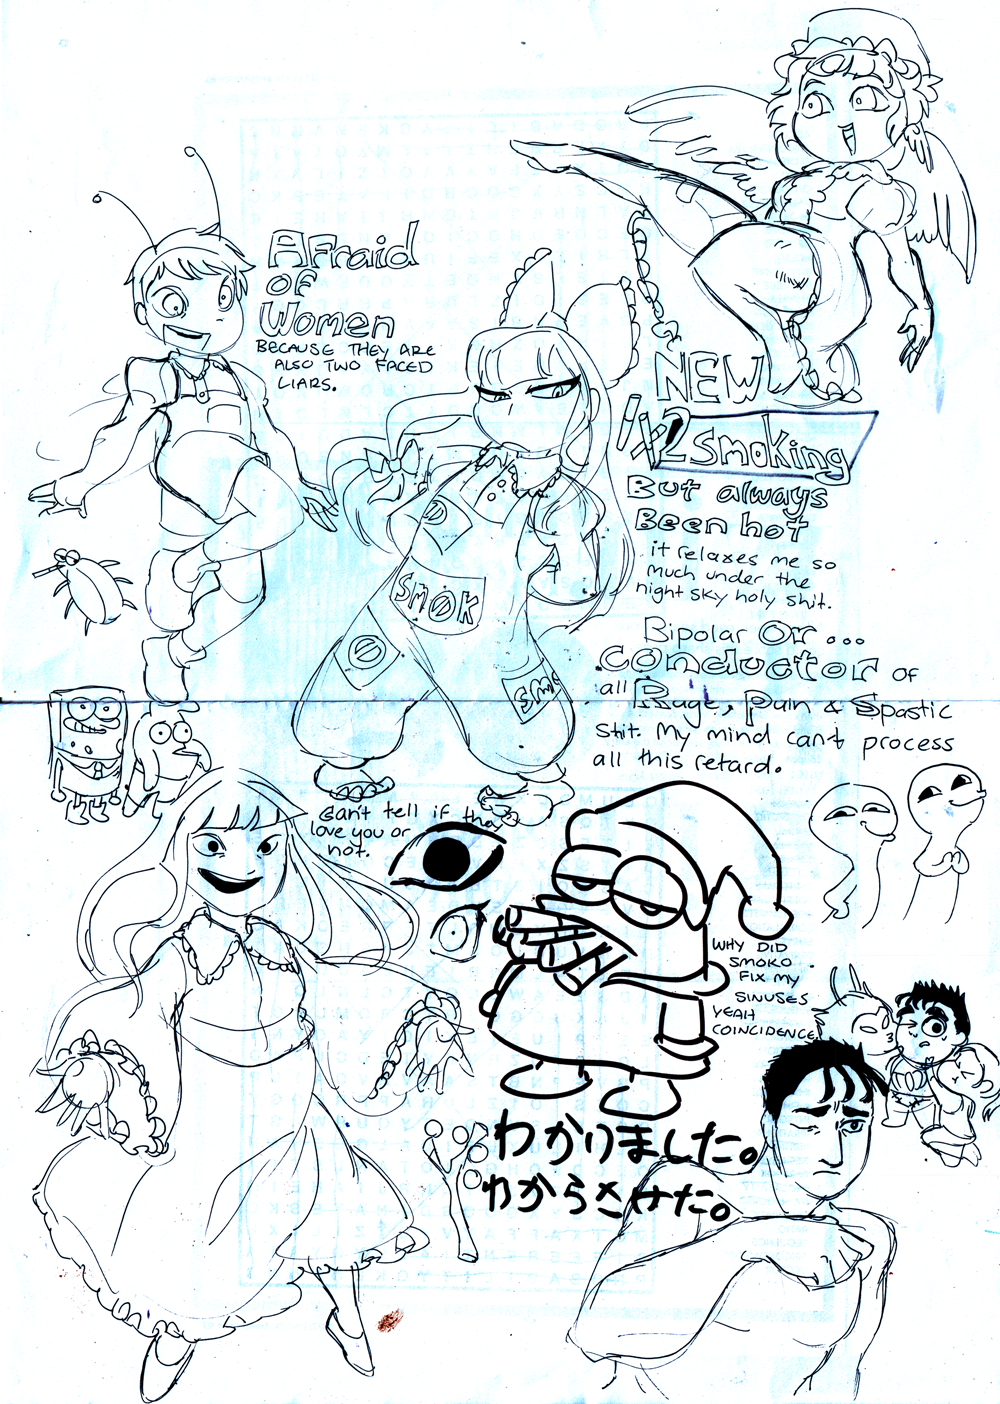 Afraid
of
Women
BECAUSE THEY ARE
ALSO TWO FACED
LIARS.
NEW
1x2 Smoking
But always
Been hot
it relaxes me so
much under the
night sky holy shit.
Bipolar Or...
conductor of
all Rage, Pain & Spastic
Shit. My mind can't process
all this retard.
SMOK
SMO
Can't tell if they
love you or
not.
WHY DID
SMOKO
FIX MY
SINUSES
YEAH
COINCIDENCE
わかりました。
わからさけた。